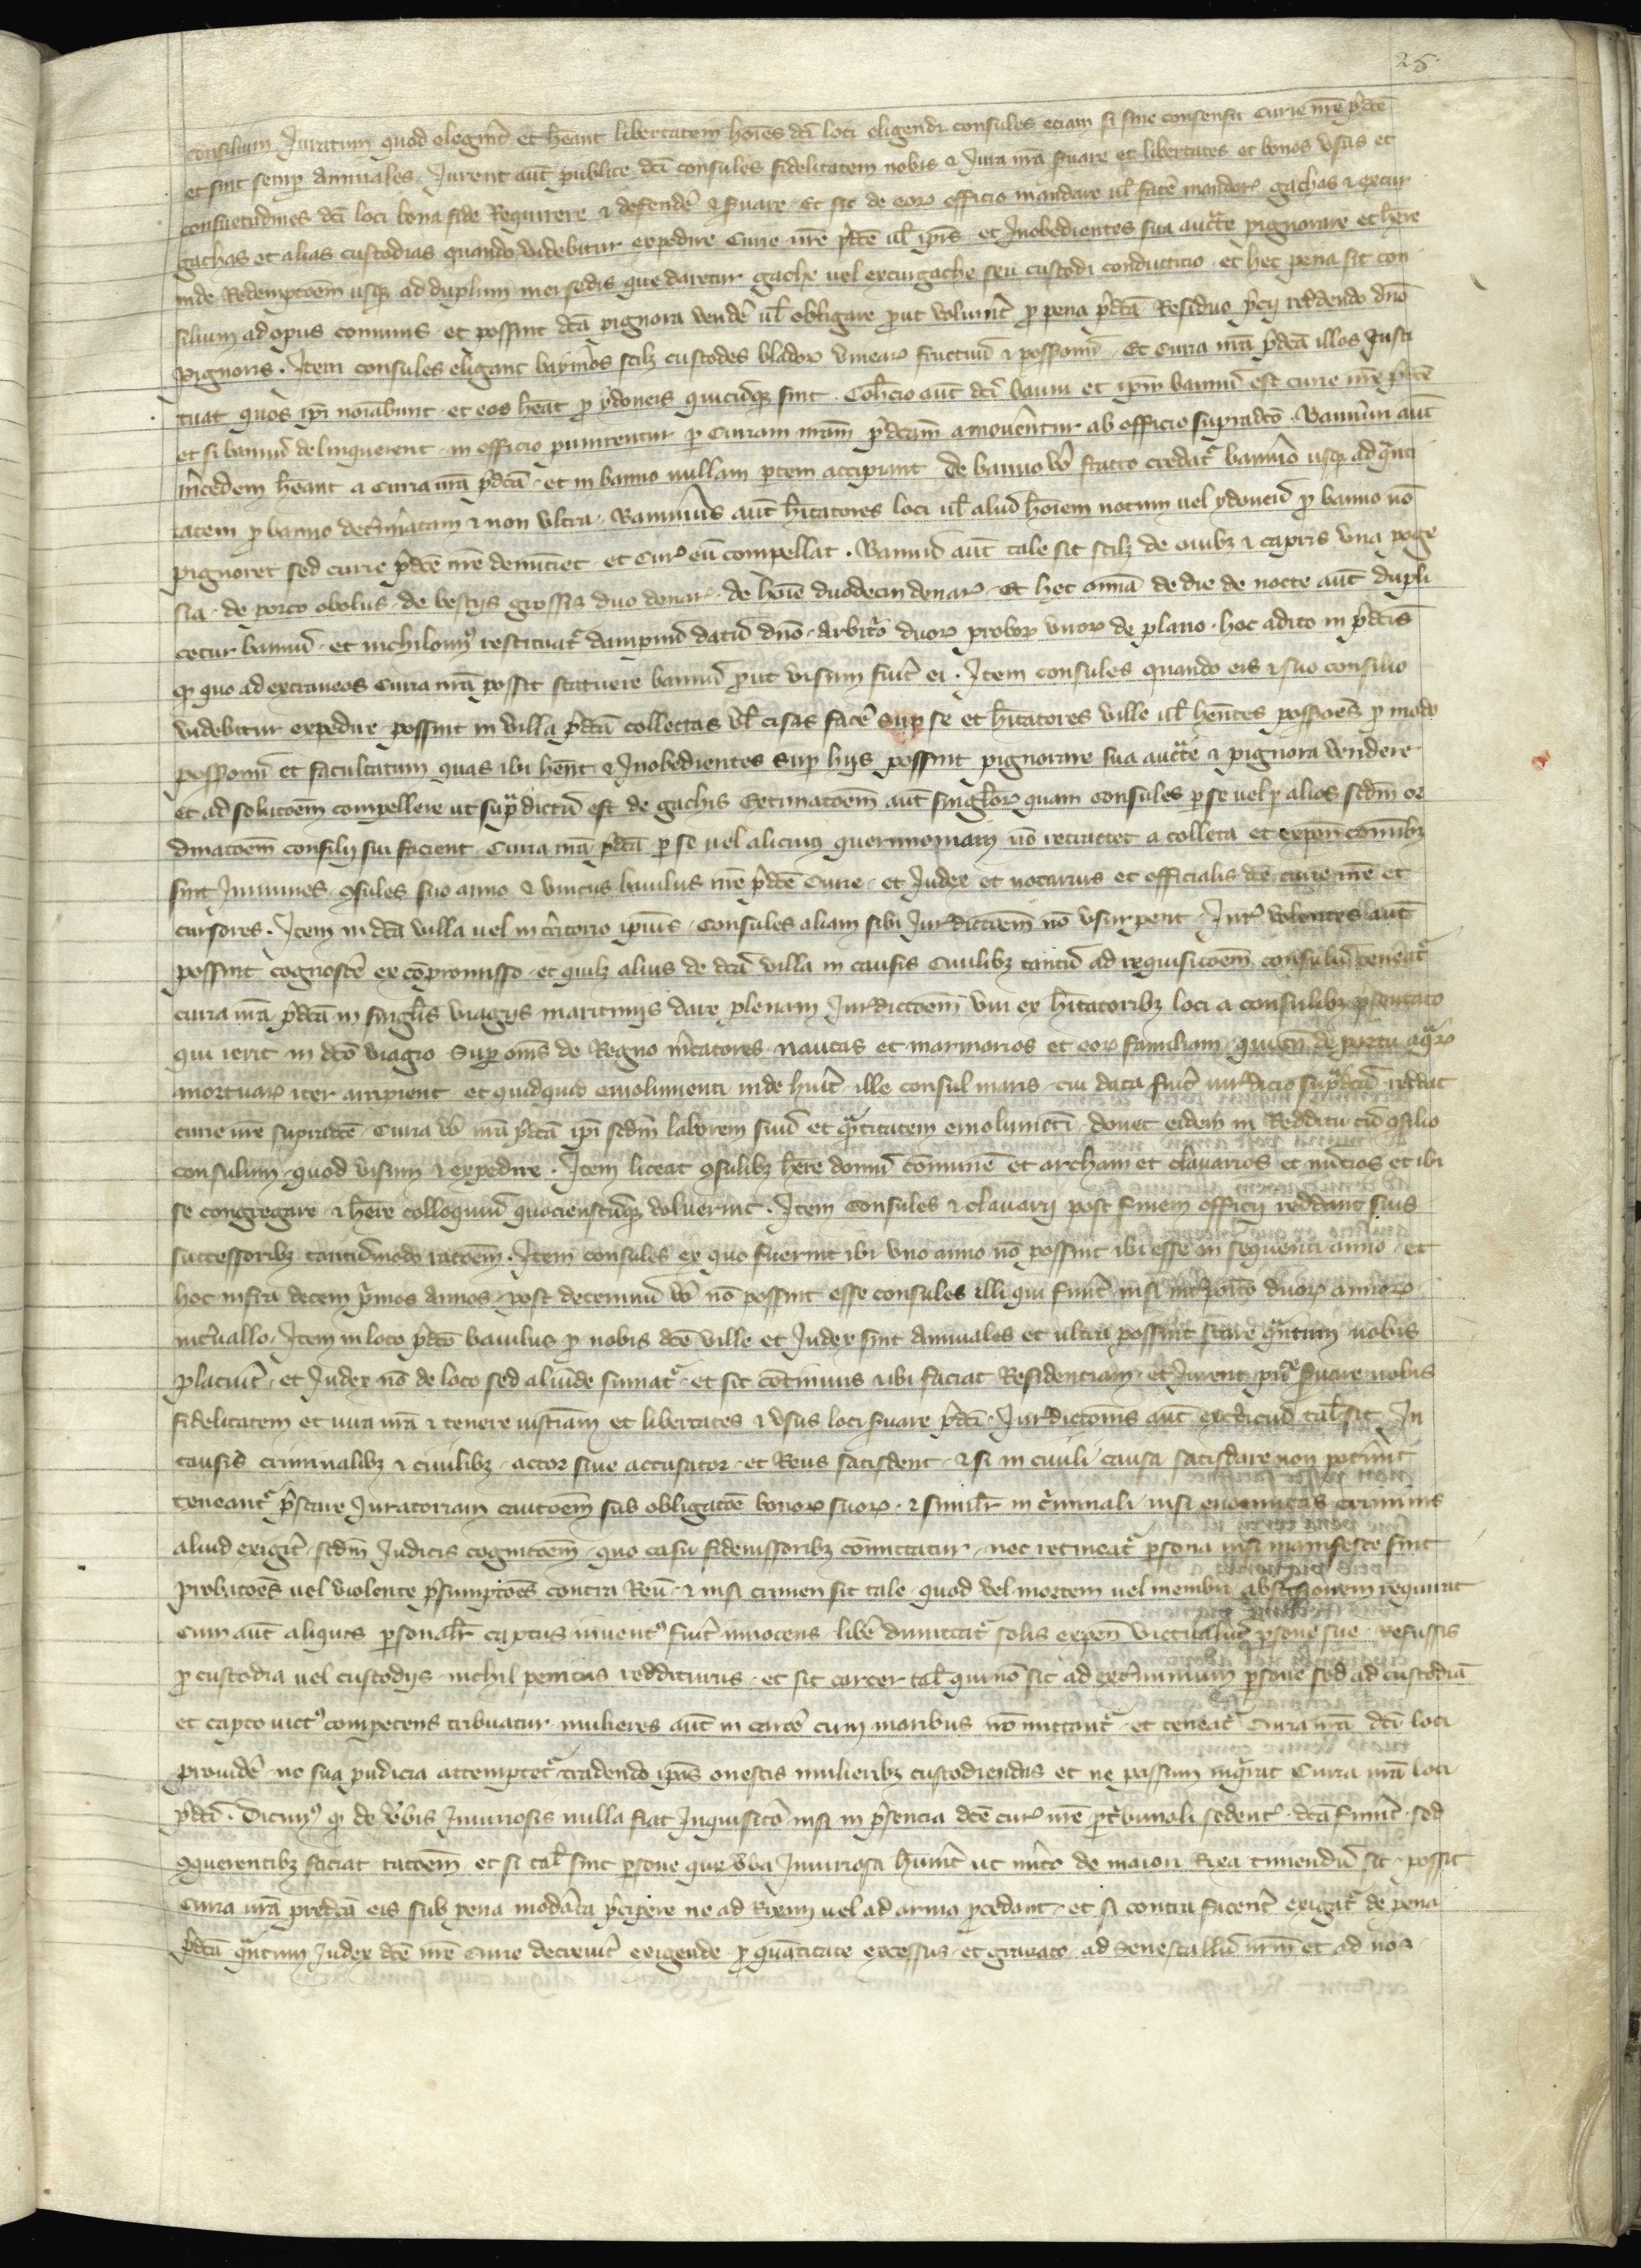 25
consilium Juratum quod elegerit et heant libertatem hoies dci loci eligendi consules eciam si sine consensu Curie nre pdce
et sint semp Annuales. Jurent aut publice dci consules fidelitatem nobis et Jura nra servare et libertates et bonos usus et
consuetudines dci loci bona fide Requirere et defendere et servare. Et sit de eor officio mandare ul facere mandar gachas et excur
gachas et alias custodias quando videbitur expedire Curie nre pdce ul ipis et Inobedientes sua aucte pignorare et here
inde Redemptoem usq ad duplum mersedis que daretur gache vel excurgache seu custodi conductitio. et hec pena sit con
silium ad opus comunis. et possint dca pignora vendere ul obligare put voluerit p pena pdca Residuo pcij reddendo dno
pignoris. Item consules eligant bannios scilz custodes blador vinear fructuu et possionu. Et Curia nra pdca illos Insti
tuat quos ipi noiabunt. et eos heat p ydoneis quicuq sint. Cohcio aut dci banni et ipm bannu est curie nre pdce
et si bannii delinquerent in officio punirentur p Curiam nram pdcam amoventur ab officio supradco. Bannerii aut
mcedem heant a Curia nra pdca. et in banno nullam ptem accipiant de banno vo fracto credat bannio usq ad qnti
tatem p banno determinatam et non ultra. Bannius aut hitatores loci ul aliud hoiem notum vel ydoneu p banno no
pignoret sed curie pdce nre denuciet. et Cur eu compellat. Bannu aut tale sit scilz de ovibz et capris una poge
sia. de porco obolus. de bestijs grossis duo denar. de hoie duodecim denar. Et hec omia de die de nocte aut dupli
cetur bannu. et nichilomi restituat dampnu datu dno. Arbitro duor probor viror de plano. hoc adito in pdcis
q quo ad extraneos Curia nra possit statuere bannu put visum fuit ei. Item consules quando eis et suo consilio
videbitur expedire possint in villa pdca collectas vl cisas facere sup se et hitatores ville ul hentes possioes p modo
possionu et facultatum quas ibi hent et Inobedientes sup hijs possint pignorare sua aucte et pignora vendere
et ad solutoem compellere ut supra dictu est de gachis Extimatoem aut singlor quam consules p se vel p alios scdm or
dinatoem consilij sui facient. Curia nra pdca p se vel alicuius querimoniam no retractet a collecta et expen comuibz
sint Inmunes. consules suo anno et unicus baiulus nre pdce Curie. et Judex et notarius et officialis dce curie nre et
cursores. Item in dca villa vel in tritorio ipius. Consules aliam sibi Jurdictoem no usurpent. Jur volentes aut
possint cognoscere ex comromisso. et quilz alius de dca villa in causis civilibz tantu ad requisitoem consulu teneat
curia nra pdca in singlis viagijs maritimis dare plenam Jurdictoem uni ex hitatoribz loci a consulibz psentato
qui ierit in dco viagio sup oms de Regno mcatores nautas et marinarios et eor familiam qui de portu aqr
mortuar iter arripient. et quidquid emolumenti inde huit ille consul maris cui data fuit iurdictio supdcu reddat
curie nre supradce. Curia vo nra pdca ipi scdm laborem suu et qntitatem emolumeti. donet eidem in Redditu cu consilio
consulum. quod visum et expedire. Item liceat consulibz here domu comune et archam et clavarios et nucios et ibi
se congregare et here colloquiu quocienscuq voluerint. Item Consules et clavarij post finem officij reddant suis
successoribz tantumodo ratoem. Item consules ex quo fuerint ibi uno anno no possint ibi esse in sequenti anno. et
hoc infra decem pmos annos. post decenniu vo no possint esse consules illi qui funt nisi interpoito duor annor
intvallo. Item in loco pdco baiulus p nobis dce ville et Judex sint Annuales et ultra possint stare qntum nobis
placuit. et Judex no de loco sed aliunde sumat. et sit continuus et ibi faciat Residenciam. et Jurent servare nobis
fidelitatem et iura nra et tenere iusticiam et libertates et usus loci servare pdci. Jurdictonis aut exerciciu tal sit In
causis criminalibz et civilibz. actor sive accusator. et Reus satisdent. et si in civili causa satisdare non potint
teneant pstare Juratoriam cautoem sub obligatoe bonor suor. et similr in criminali nisi enormitas criminis
aliud exigit. scdm Judicis cognitoem. quo casu fideiussoribz comittatur. nec retineat psona nisi manifeste sint
probatoes vel violente psumptoes contra Reu. et nisi crimen sit tale. quod vel mortem vel membri abscisionem requirat
Cum aut aliquis psonalr captus invent fuit innocens. libe dimittat solis expen victualiu psone sue. Refussis
p custodia vel custodijs. nichil penitus redditurus. et sit carcer tal qui no sit ad exterminium psone sed ad custodia
et capto vict competens tribuatur. mulieres aut in carce cum maribus no mittant. et teneat Curia nra dci loci
providere ne sua pudicia attemptet tradendo ipas onestis mulieribz custodiendas et ne passim inqrat Curia nra loci
pdci. Dicim q de vbis Iniuriosis nulla fiat Inquisito nisi in psencia dce cur nre p tbunali sedent. dca funt. sed
conquerentibz faciat ratoem. et si tal sint psone que vba Iniuriosa hunt ut mito de maiori Rixa timendu sit. possit
Curia nra predca eis sub pena moderata pcipere ne ad Rixam vel ad arma pcedant. et si contra facent exigat de pena
pdca qntum Judex dce nre Curie decrevit exigende. p quantitate excessus. et gravato ad Senescallu nrm et ad nos